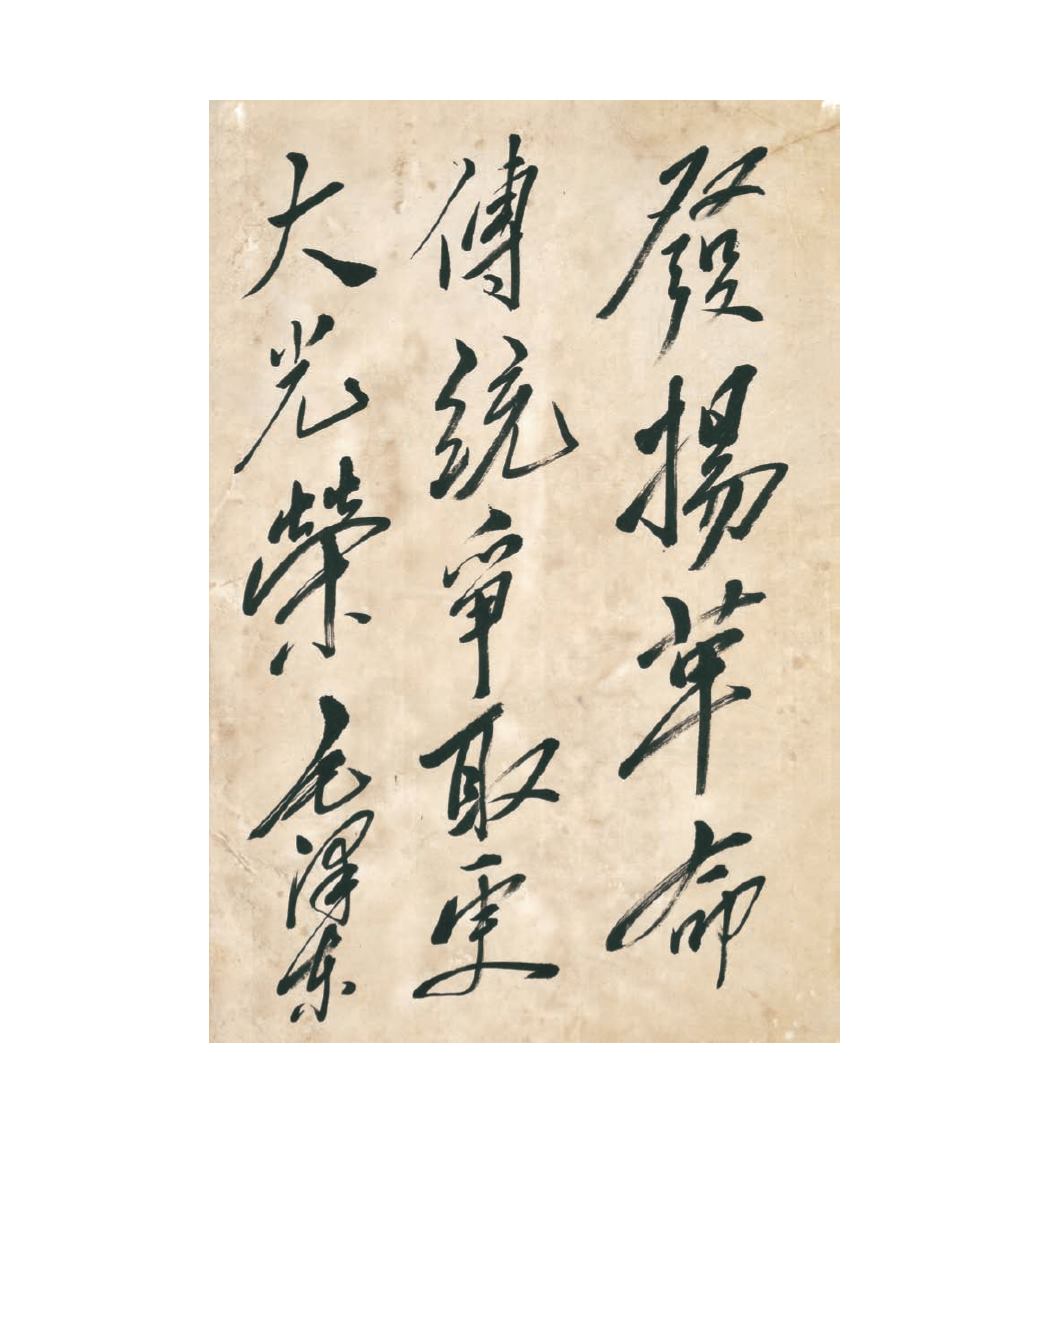 發揚革命
傳統爭取更
大光榮
毛澤东